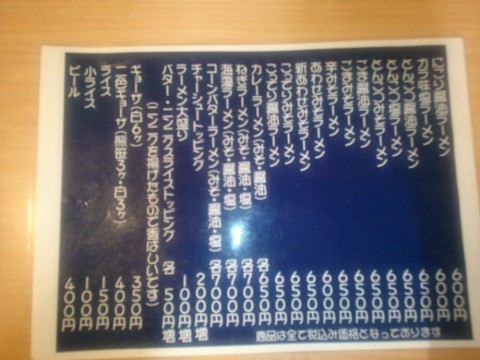 にごり醤油ラーメン 600円
ガラ味塩ラーメン 600円
とんこつ醤油ラーメン 600円
とんこつ塩ラーメン 650円
とんこつみそラーメン 650円
ごま醤油ラーメン 650円
ごまみそラーメン 650円
辛みそラーメン 650円
あわせみそラーメン 600円
新あわせみそラーメン 650円
こってりみそラーメン 650円
こってり醤油ラーメン 650円
カレーラーメン(みそ・醤油) 各650円
ねぎラーメン(みそ・醤油・塩) 各700円
海藻ラーメン(みそ・醤油・塩) 各700円
コーンバターラーメン(みそ・醤油・塩) 各700円
チャーシュートッピング 200円増
ラーメン大盛り 100円増
バター・ニンニクフライストッピング 各50円増
(ニンニクを揚げたもので香ばしいです)
ギョーザ(白6ヶ) 350円
二色ギョーザ(熊笹3ヶ・白3ヶ) 400円
ライス 150円
小ライス 100円
ビール 400円
商品は全て税込み価格となっております